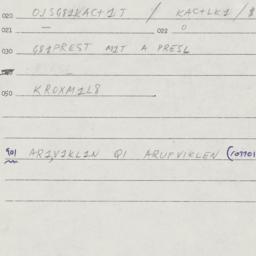 020 OJSG81KAC+1T / KAC+LK1 / $
021 — 022 0
030 G81PREST M1T A PRESL
050 KROXM1L8
901 AR1V1KL1N Q1 ARUFVIKLEN